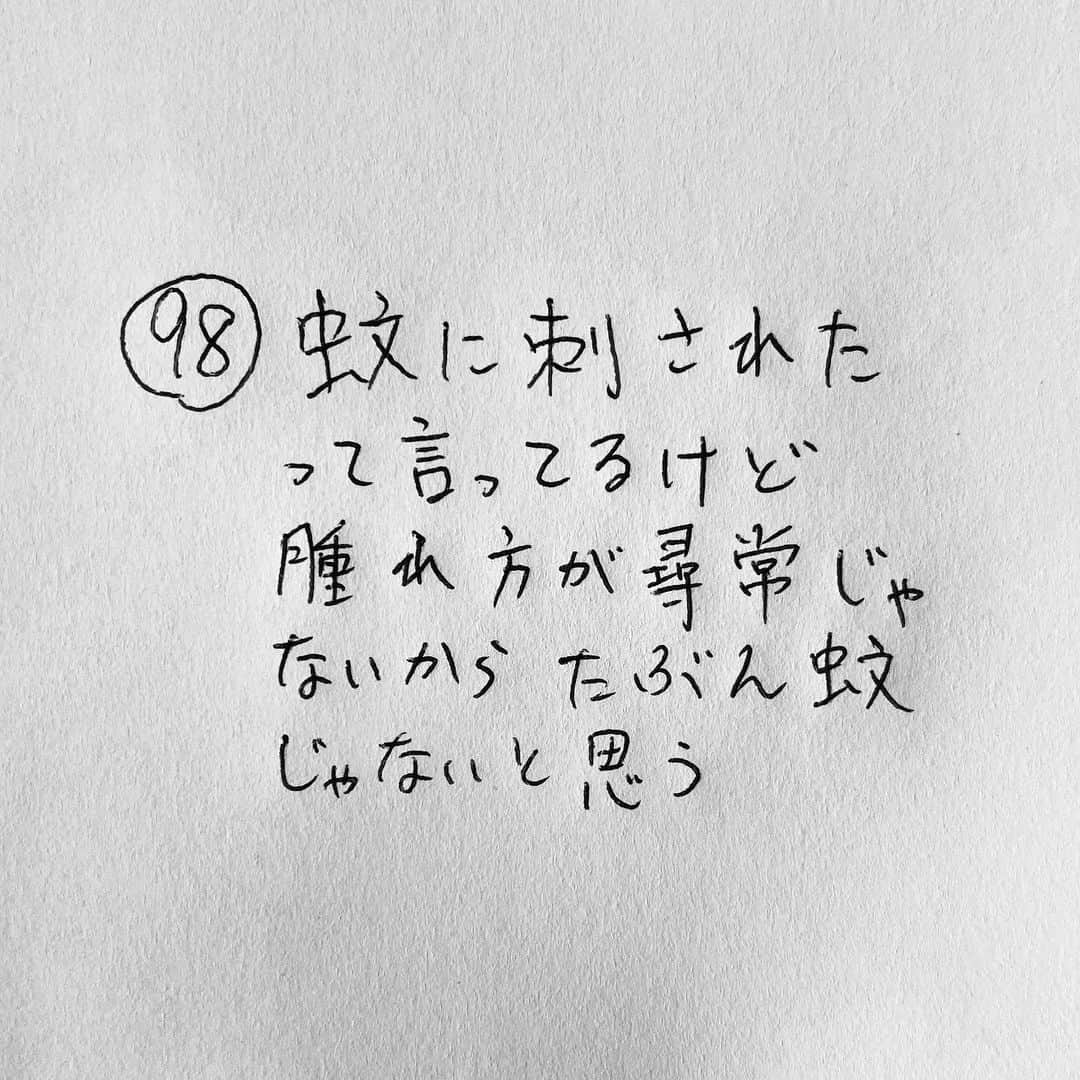 98 蚊に刺された
って言ってるけど
腫れ方が尋常じゃ
ないから たぶん蚊
じゃないと思う